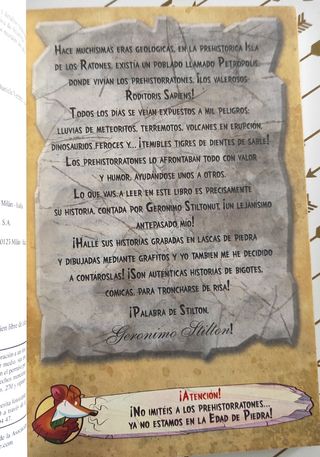 Hace muchísimas eras geológicas, en la prehistórica Isla
de los Ratones, existía un poblado llamado Petrópolis,
donde vivían los prehistorratones. ¡Los valerosos
Roditoris Sapiens!
Todos los días se veían expuestos a mil peligros:
lluvias de meteoritos, terremotos, volcanes en erupción,
dinosaurios feroces y... ¡temibles tigres de dientes de sable!
Los prehistorratones lo afrontaban todo con valor
y humor, ayudándose unos a otros.
Lo que vais a leer en este libro es precisamente
su historia, contada por Geronimo Stiltonut, ¡un lejanísimo
antepasado mío!
¡Hallé sus historias grabadas en lascas de piedra
y dibujadas mediante grafitos y yo también me he decidido
a contároslas! ¡Son auténticas historias de bigotes,
cómicas, para troncharse de risa!
¡Palabra de Stilton,
Geronimo Stilton!
¡Atención!
¡No imitéis a los prehistorratones...
ya no estamos en la Edad de Piedra!
Milán - Italia
S.A.